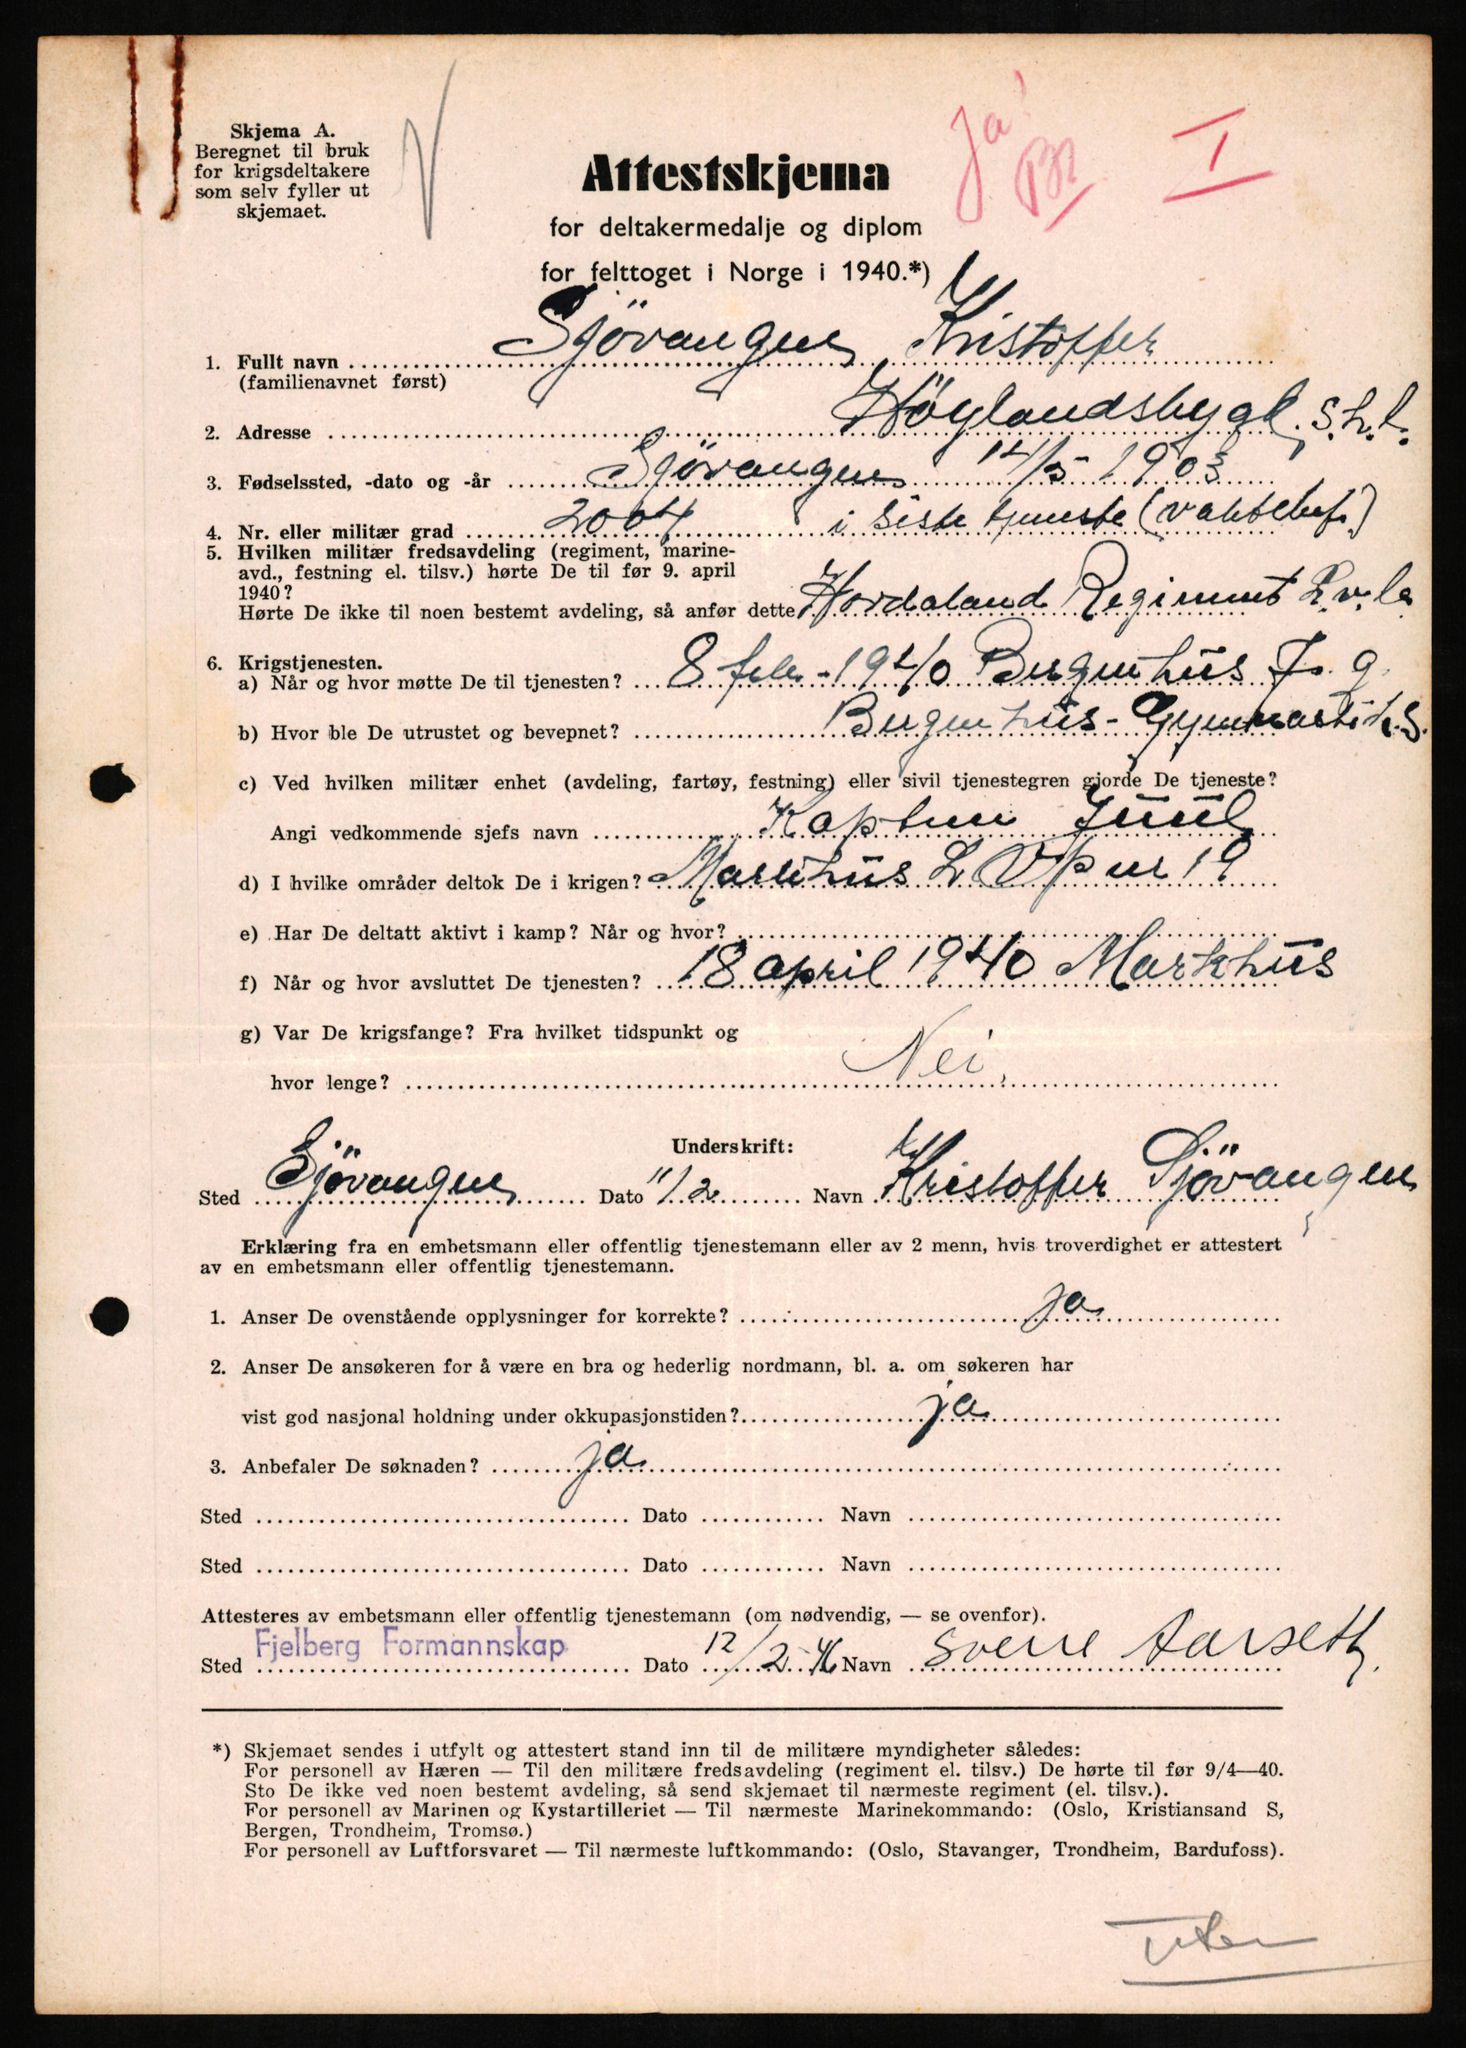 Skjema A.
Beregnet til bruk
for krigsdeltakere
som selv fyller ut
skjemaet.
Ja!
I
Attestskjema
for deltakermedalje og diplom
for felttoget i Norge i 1940.*)
1. Fullt navn Sjövangen Kristoffer
(familienavnet først)
2. Adresse Höylandsbygd. S.h.l.
3. Fødselssted, -dato og -år Sjövangen 14/5 1903
4. Nr. eller militær grad 2004 i siste tjeneste (vaktbef.)
5. Hvilken militær fredsavdeling (regiment, marine-
avd., festning el. tilsv.) hørte De til før 9. april
1940?
Hørte De ikke til noen bestemt avdeling, så anfør dette Hordaland Regiment L.v.k.
6. Krigstjenesten.
a) Når og hvor møtte De til tjenesten? 8 feb. - 1940 Bergenhus
b) Hvor ble De utrustet og bevepnet? Bergenhus - Gymnastik.S.
c) Ved hvilken militær enhet (avdeling, fartøy, festning) eller sivil tjenestegren gjorde De tjeneste?
Angi vedkommende sjefs navn Kaptein Juul
d) I hvilke områder deltok De i krigen? Markhus L Oper 19
e) Har De deltatt aktivt i kamp? Når og hvor?
f) Når og hvor avsluttet De tjenesten? 18 april 1940 Markhus
g) Var De krigsfange? Fra hvilket tidspunkt og
hvor lenge? Nei.
Underskrift:
Sted Sjövangen Dato 11/2 Navn Kristoffer Sjövangen
Erklæring fra en embetsmann eller offentlig tjenestemann eller av 2 menn, hvis troverdighet er attestert
av en embetsmann eller offentlig tjenestemann.
1. Anser De ovenstående opplysninger for korrekte? ja
2. Anser De ansøkeren for å være en bra og hederlig nordmann, bl. a. om søkeren har
vist god nasjonal holdning under okkupasjonstiden? ja
3. Anbefaler De søknaden? ja
Sted Dato Navn
Sted Dato Navn
Attesteres av embetsmann eller offentlig tjenestemann (om nødvendig, — se ovenfor).
Sted Fjelberg Formannskap Dato 12/2-46 Navn Sverre Aarseth
*) Skjemaet sendes i utfylt og attestert stand inn til de militære myndigheter således:
For personell av Hæren — Til den militære fredsavdeling (regiment el. tilsv.) De hørte til før 9/4—40.
Sto De ikke ved noen bestemt avdeling, så send skjemaet til nærmeste regiment (el. tilsv.).
For personell av Marinen og Kystartilleriet — Til nærmeste Marinekommando: (Oslo, Kristiansand S,
Bergen, Trondheim, Tromsø.)
For personell av Luftforsvaret — Til nærmeste luftkommando: (Oslo, Stavanger, Trondheim, Bardufoss).